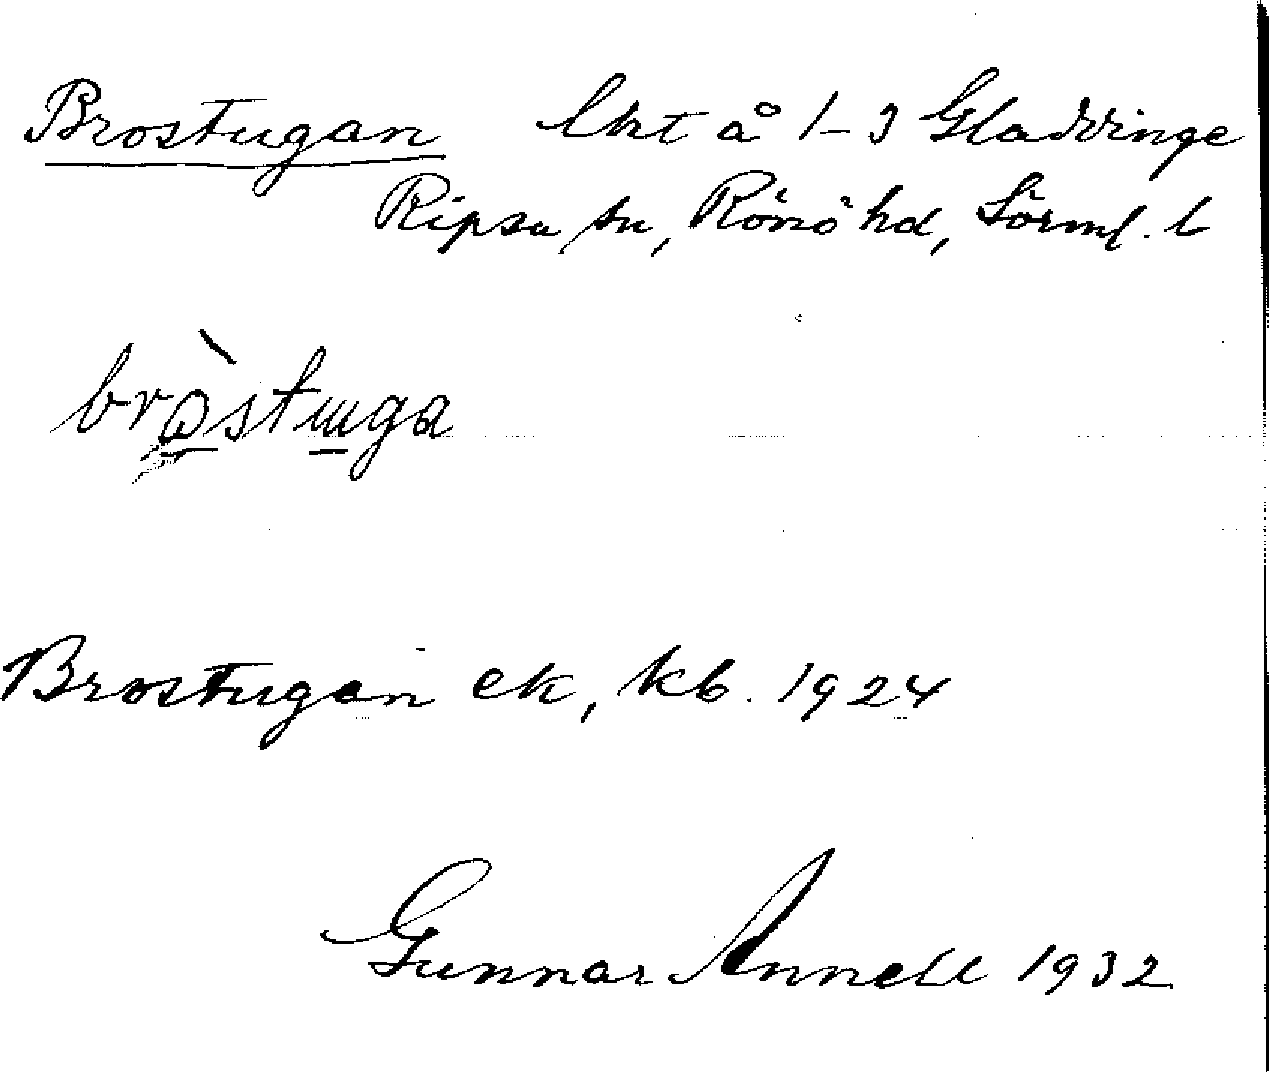 Brostugan lht å 1-3 Gladvinge
Ripsa sn, Rönö hd, Sörml. l
bròstuga
Brostugan ek, kb. 1924
Gunnar Annell 1932